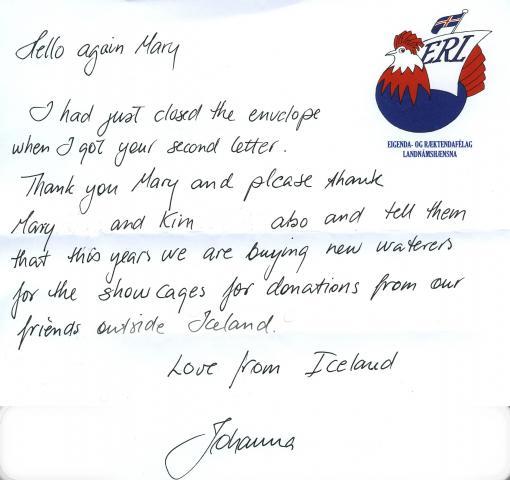 Hello again Mary
ERL
EIGENDA- OG RÆKTENDAFÉLAG
LANDNÁMSHÆNSNA
I had just closed the envelope
when I got your second letter.
Thank you Mary and please thank
Mary and Kim also and tell them
that this years we are buying new waterers
for the showcages for donations from our
friends outside Iceland.
Love from Iceland
Johanna